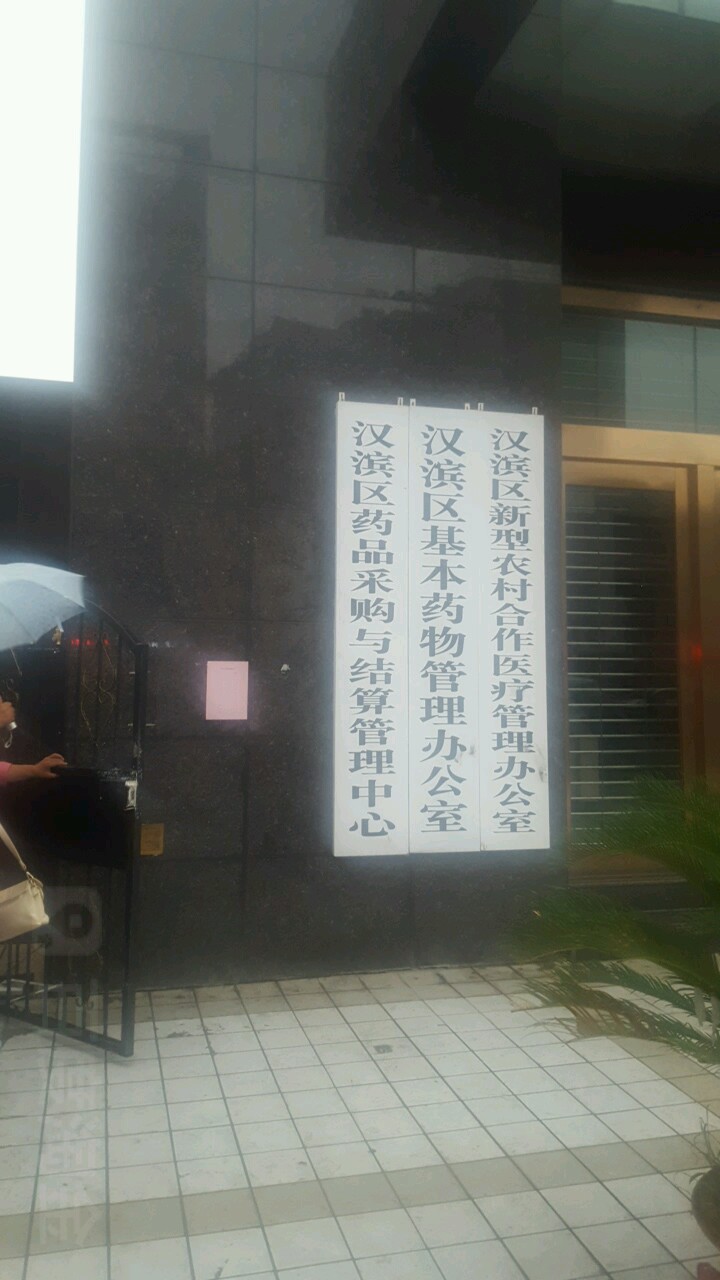 汉滨区新型农村合作医疗管理办公室
汉滨区基本药物管理办公室
汉滨区药品采购与结算管理中心